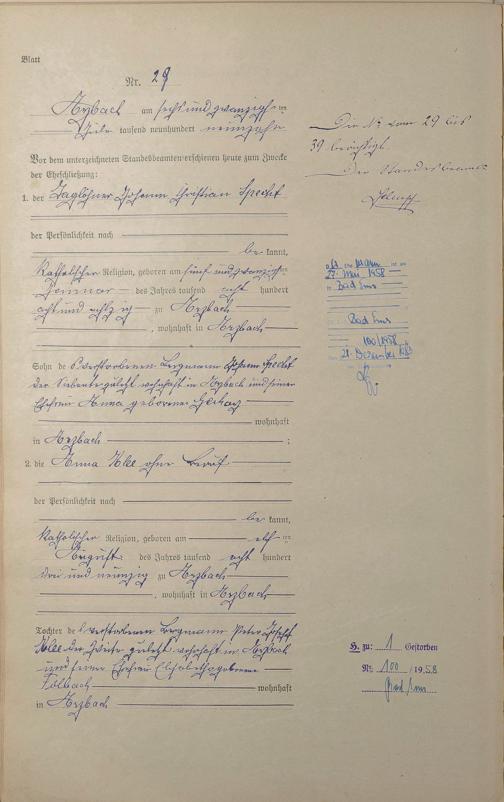 Blatt
Nr. 29
Arzbach am sechs und zwanzigsten
tausend neunhundert neunzehn
Vor dem unterzeichneten Standesbeamten erschienen heute zum Zwecke
der Eheschließung:
1. der Taglöhner Johann Christian Specht
der Persönlichkeit nach
be kannt,
Katholischer Religion, geboren am fünf und zwanzigsten
des Jahres tausend acht hundert
acht und achtzig zu Arzbach
, wohnhaft in Arzbach
Sohn des verstorbenen Bergmann Specht
zuletzt wohnhaft in Arzbach und seiner
Ehefrau Anna geborene
wohnhaft
in Arzbach ;
2. die Anna Klee ohne Beruf
der Persönlichkeit nach
be kannt,
Katholischer Religion, geboren am elften
August des Jahres tausend acht hundert
drei und neunzig zu Arzbach
, wohnhaft in Arzbach
Tochter des verstorbenen Bergmann Peter Joseph
Klee zuletzt wohnhaft in Arzbach
und seiner Ehefrau Elisabeth geborene
wohnhaft
in Arzbach
Die Nr. von 29 bis
39 berichtigt.
Der Standesbeamte
27. Mai 1958
Bad Ems
Bad Ems
100/1958
H. zu: 1 Gestorben
Nr. 100 / 1958
Bad Ems